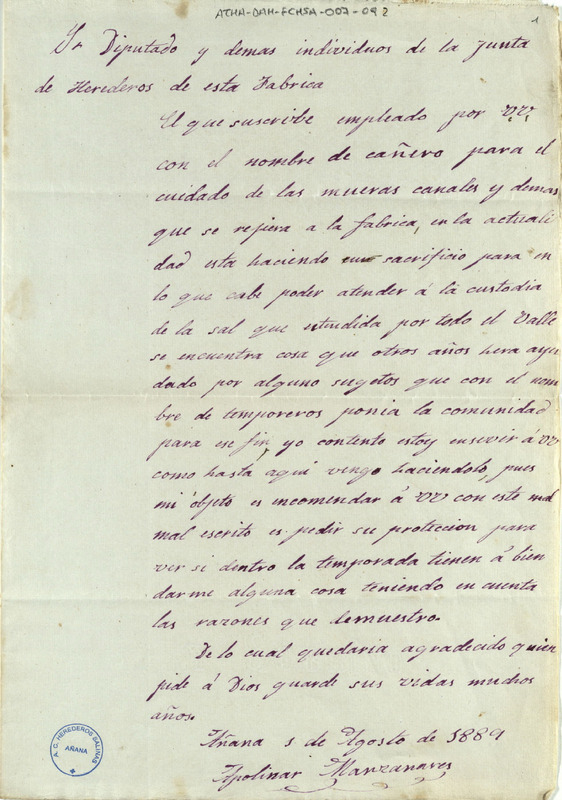 ATHA-DAH-FCHSA-007-092
1
Sr Diputado y demas individuos de la Junta
de Herederos de esta Fabrica
El que suscribe empleado por VV,
con el nombre de cañero para el
cuidado de las mueras canales y demas
que se refiera a la fabrica, en la actuali
dad esta haciendo sacrificio para en
lo que cabe poder atender á la custodia
de la sal que estendida por todo el Valle
se encuentra cosa que otros años hera ayu
dado por alguno sugetos que con el nom
bre de temporeros ponia la comunidad
para ese fin, yo contento estoy en servir á VV
como hasta aqui vengo haciendolo, pues
mi objeto es encomendar á VV con este mal
mal escrito es pedir su proteccion para
ver si dentro la temporada tienen á bien
darme alguna cosa teniendo en cuenta
las razones que demuestro.
De lo cual quedaria agradecido quien
pide á Dios guarde sus vidas muchos
años.
Añana 1 de Agosto de 1889
Apolinar Manzanares
A. C. HEREDEROS SALINAS
AÑANA